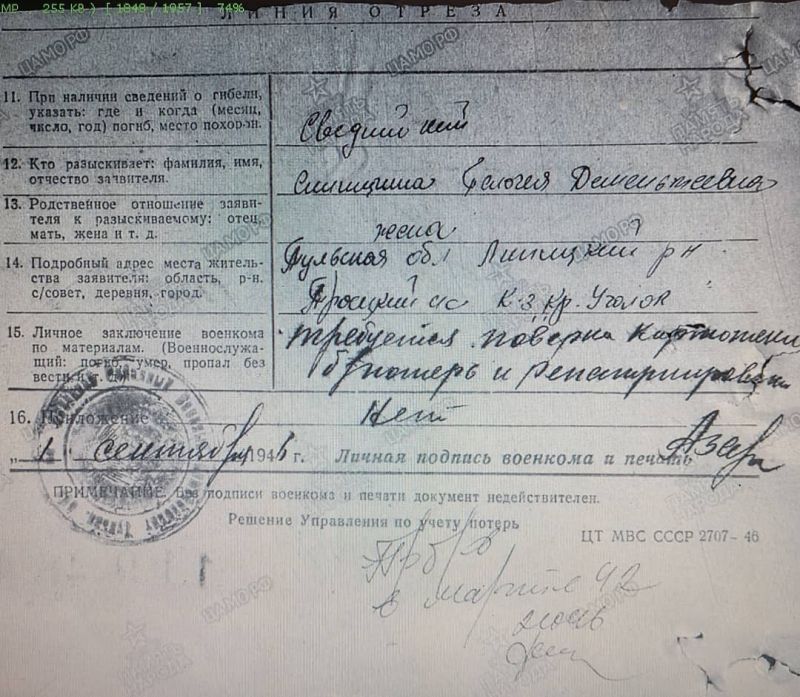 МР 255 KB ) [ 1848 / 1957 ] 74%
ЛИНИЯ ОТРЕЗА
11. При наличии сведений о гибели,
указать: где и когда (месяц,
число, год) погиб, место похорон.
Сведний нет
12. Кто разыскивает: фамилия, имя,
отчество заявителя.
Дементьевна
13. Родственное отношение заяви-
теля к разыскиваемому: отец,
мать, жена и т. д.
жена
14. Подробный адрес места житель-
ства заявителя: область, р-н.
с/совет, деревня, город.
Тульская обл Липицкий р н
Троицкий с/с К-з Кр. Уголок
15. Личное заключение военкома
по материалам. (Военнослужа-
щий: погиб, умер, пропал без
вести и т. д.)
требуется картотеки
б/потерь и
16. Приложение
Нет
„1" сентября 1946 г. Личная подпись военкома и печать
ПРИМЕЧАНИЕ. Без подписи военкома и печати документ недействителен.
Решение Управления по учету потерь
ЦТ МВС СССР 2707-46
в марте 42
ЦАМО РФ
ПАМЯТЬ НАРОДА